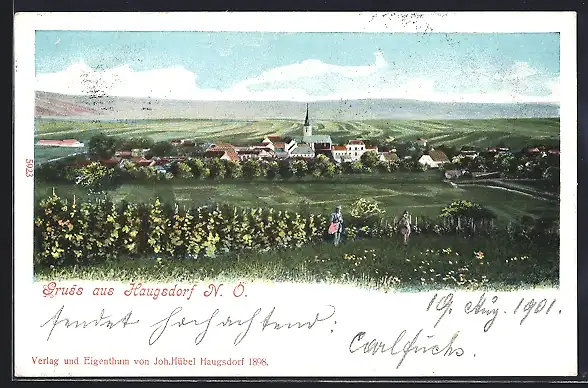 5023
Gruss aus Haugsdorf N. Ö.
19. Aug. 1901.
sendet hochachtend:
Carl Fuchs.
Verlag und Eigenthum von Joh.Hübel Haugsdorf 1898.